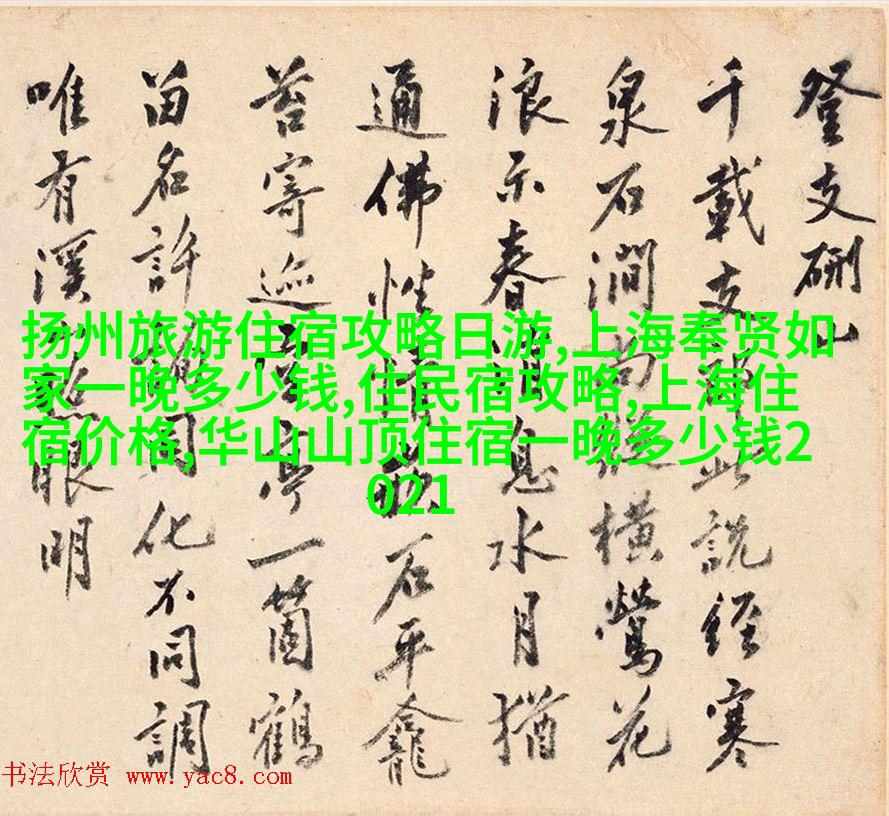 登支硎山
千載支此説經寒
泉石澗尚縱橫鶯花
浪示春消息水月猶
通佛性情石平龕
苔寄巡亭一箇鶴
留名許同化不同調
唯有溪眼明
扬州旅游住宿攻略日游,上海奉贤如
家一晚多少钱,住民宿攻略,上海住
宿价格,华山山顶住宿一晚多少钱2
021
书法欣赏 www.yac8.com